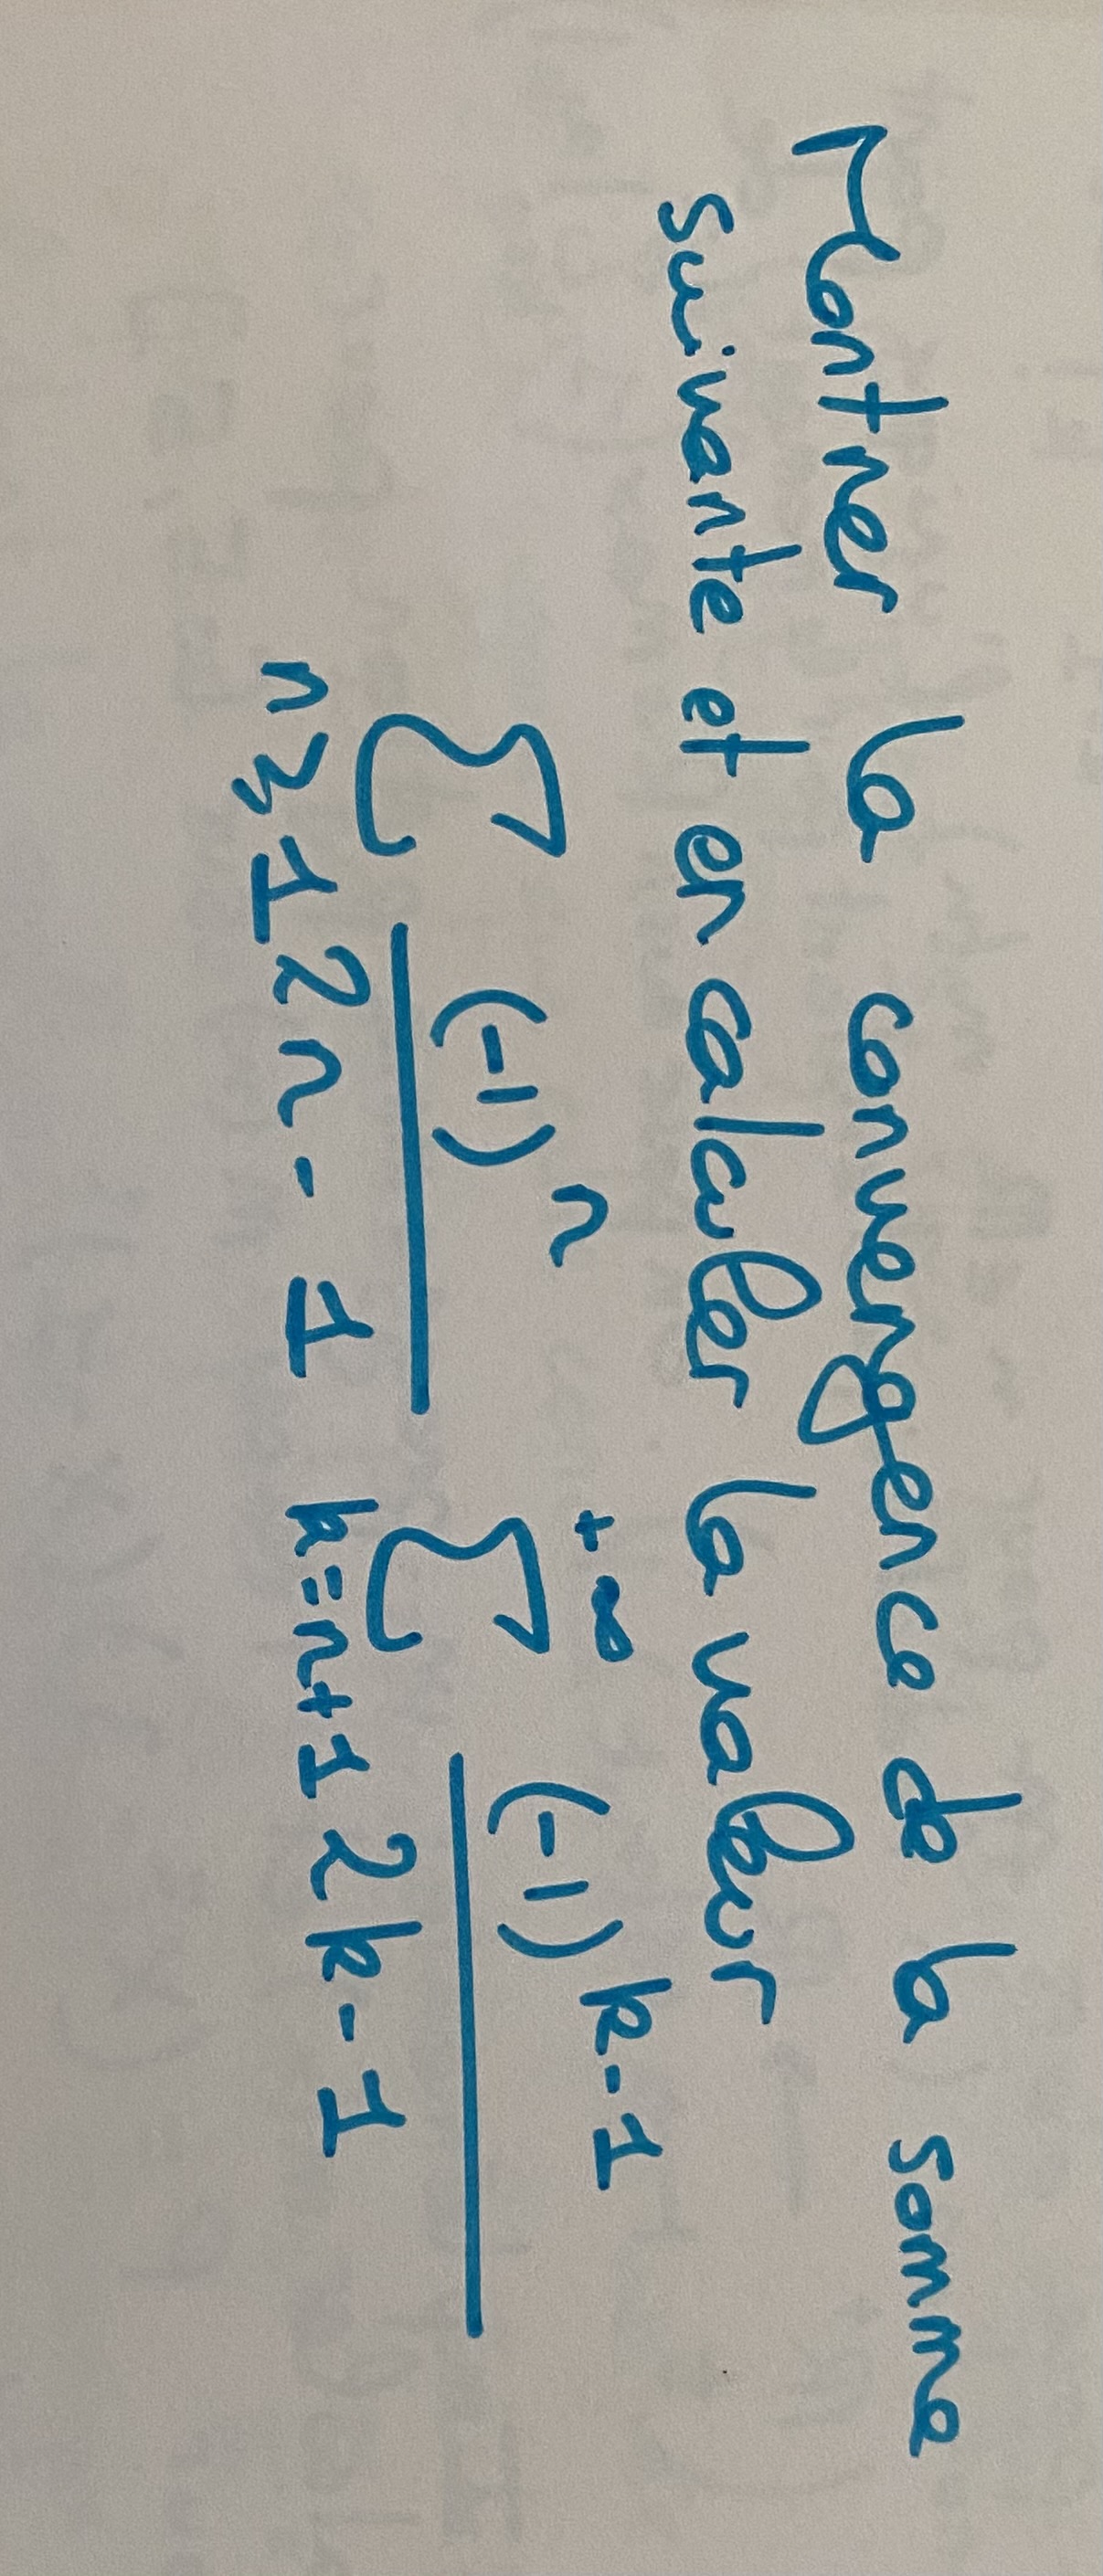 Montrer la convergence de la somme
suivante et en calculer la valeur
∑_{n≥1} (-1)^n / (2n-1) ∑_{k=n+1}^{+∞} (-1)^{k-1} / (2k-1)